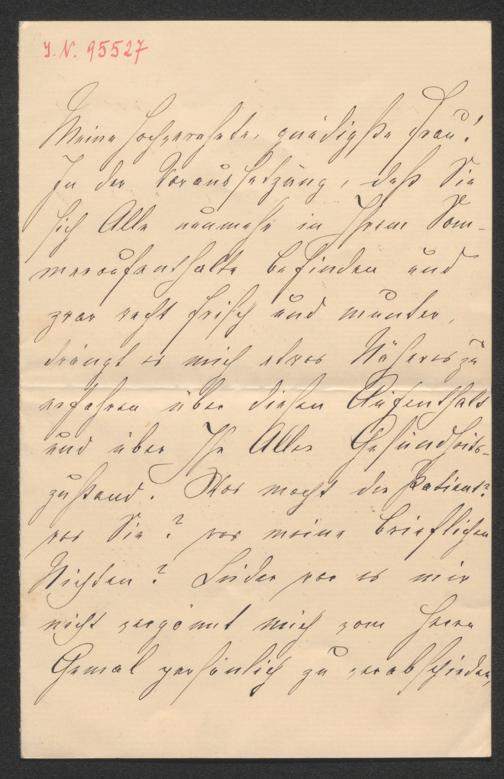 I. N. 95527
Meine hochverehrte, gnädigste Frau!
In der Voraussetzung, daß Sie
sich Alle nunmehr in Ihrem Som-
meraufenthalte befinden und
zwar recht frisch und munter,
drängt es mich etwas Näheres zu
erfahren über diesen Aufenthalt
und über Ihr Aller Gesundheits-
zustand. Was macht der Patient?
was Sie? was meine brieflichen
Nichten? Leider war es mir
nicht vergönnt mich vom Herrn
Gemal persönlich zu verabschieden,